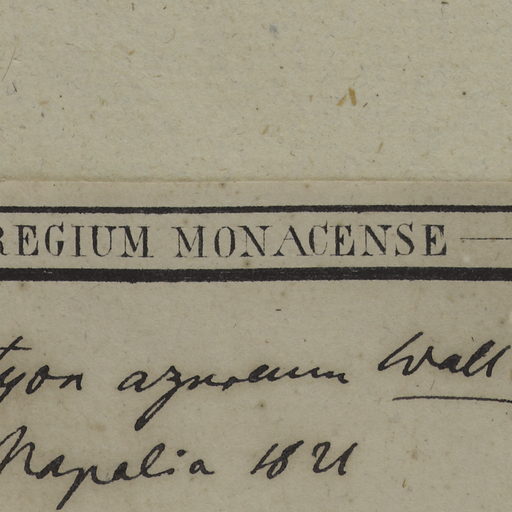 REGIUM MONACENSE
tyon azureum Wall
Napalia 1821